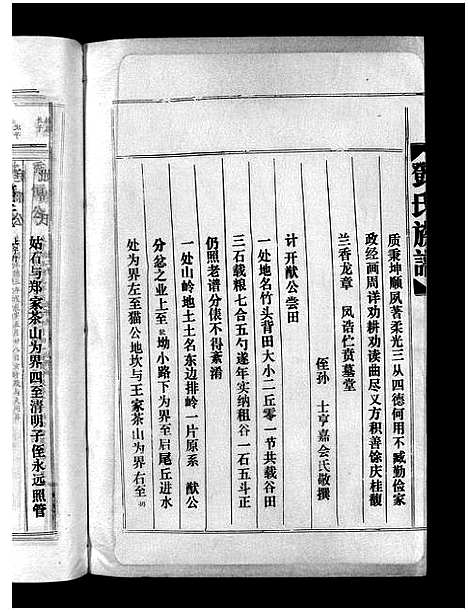 鄧氏族譜
质秉坤顺夙著柔光三从四德何用不臧勤俭家
政经画周洋劝耕劝读曲尽义方积善馀庆桂馥
兰香龙章　凤诰伫贲墓堂
侄孙　士亨嘉会氏敬撰
计开猷公尝田
一处地名竹头背田大小二丘零一节共载谷田
三石载粮七合五勺遂年实纳租谷一石五斗正
仍照老谱分俵不得紊淆
一处山岭地土土名东边排岭一片原系　猷公
分忿之业上至坳小路下为界至启尾丘进水
处为界左至猫公地坎与王家茶山为界右至
姑石与郑家茶山为界四至清明子侄永远照管